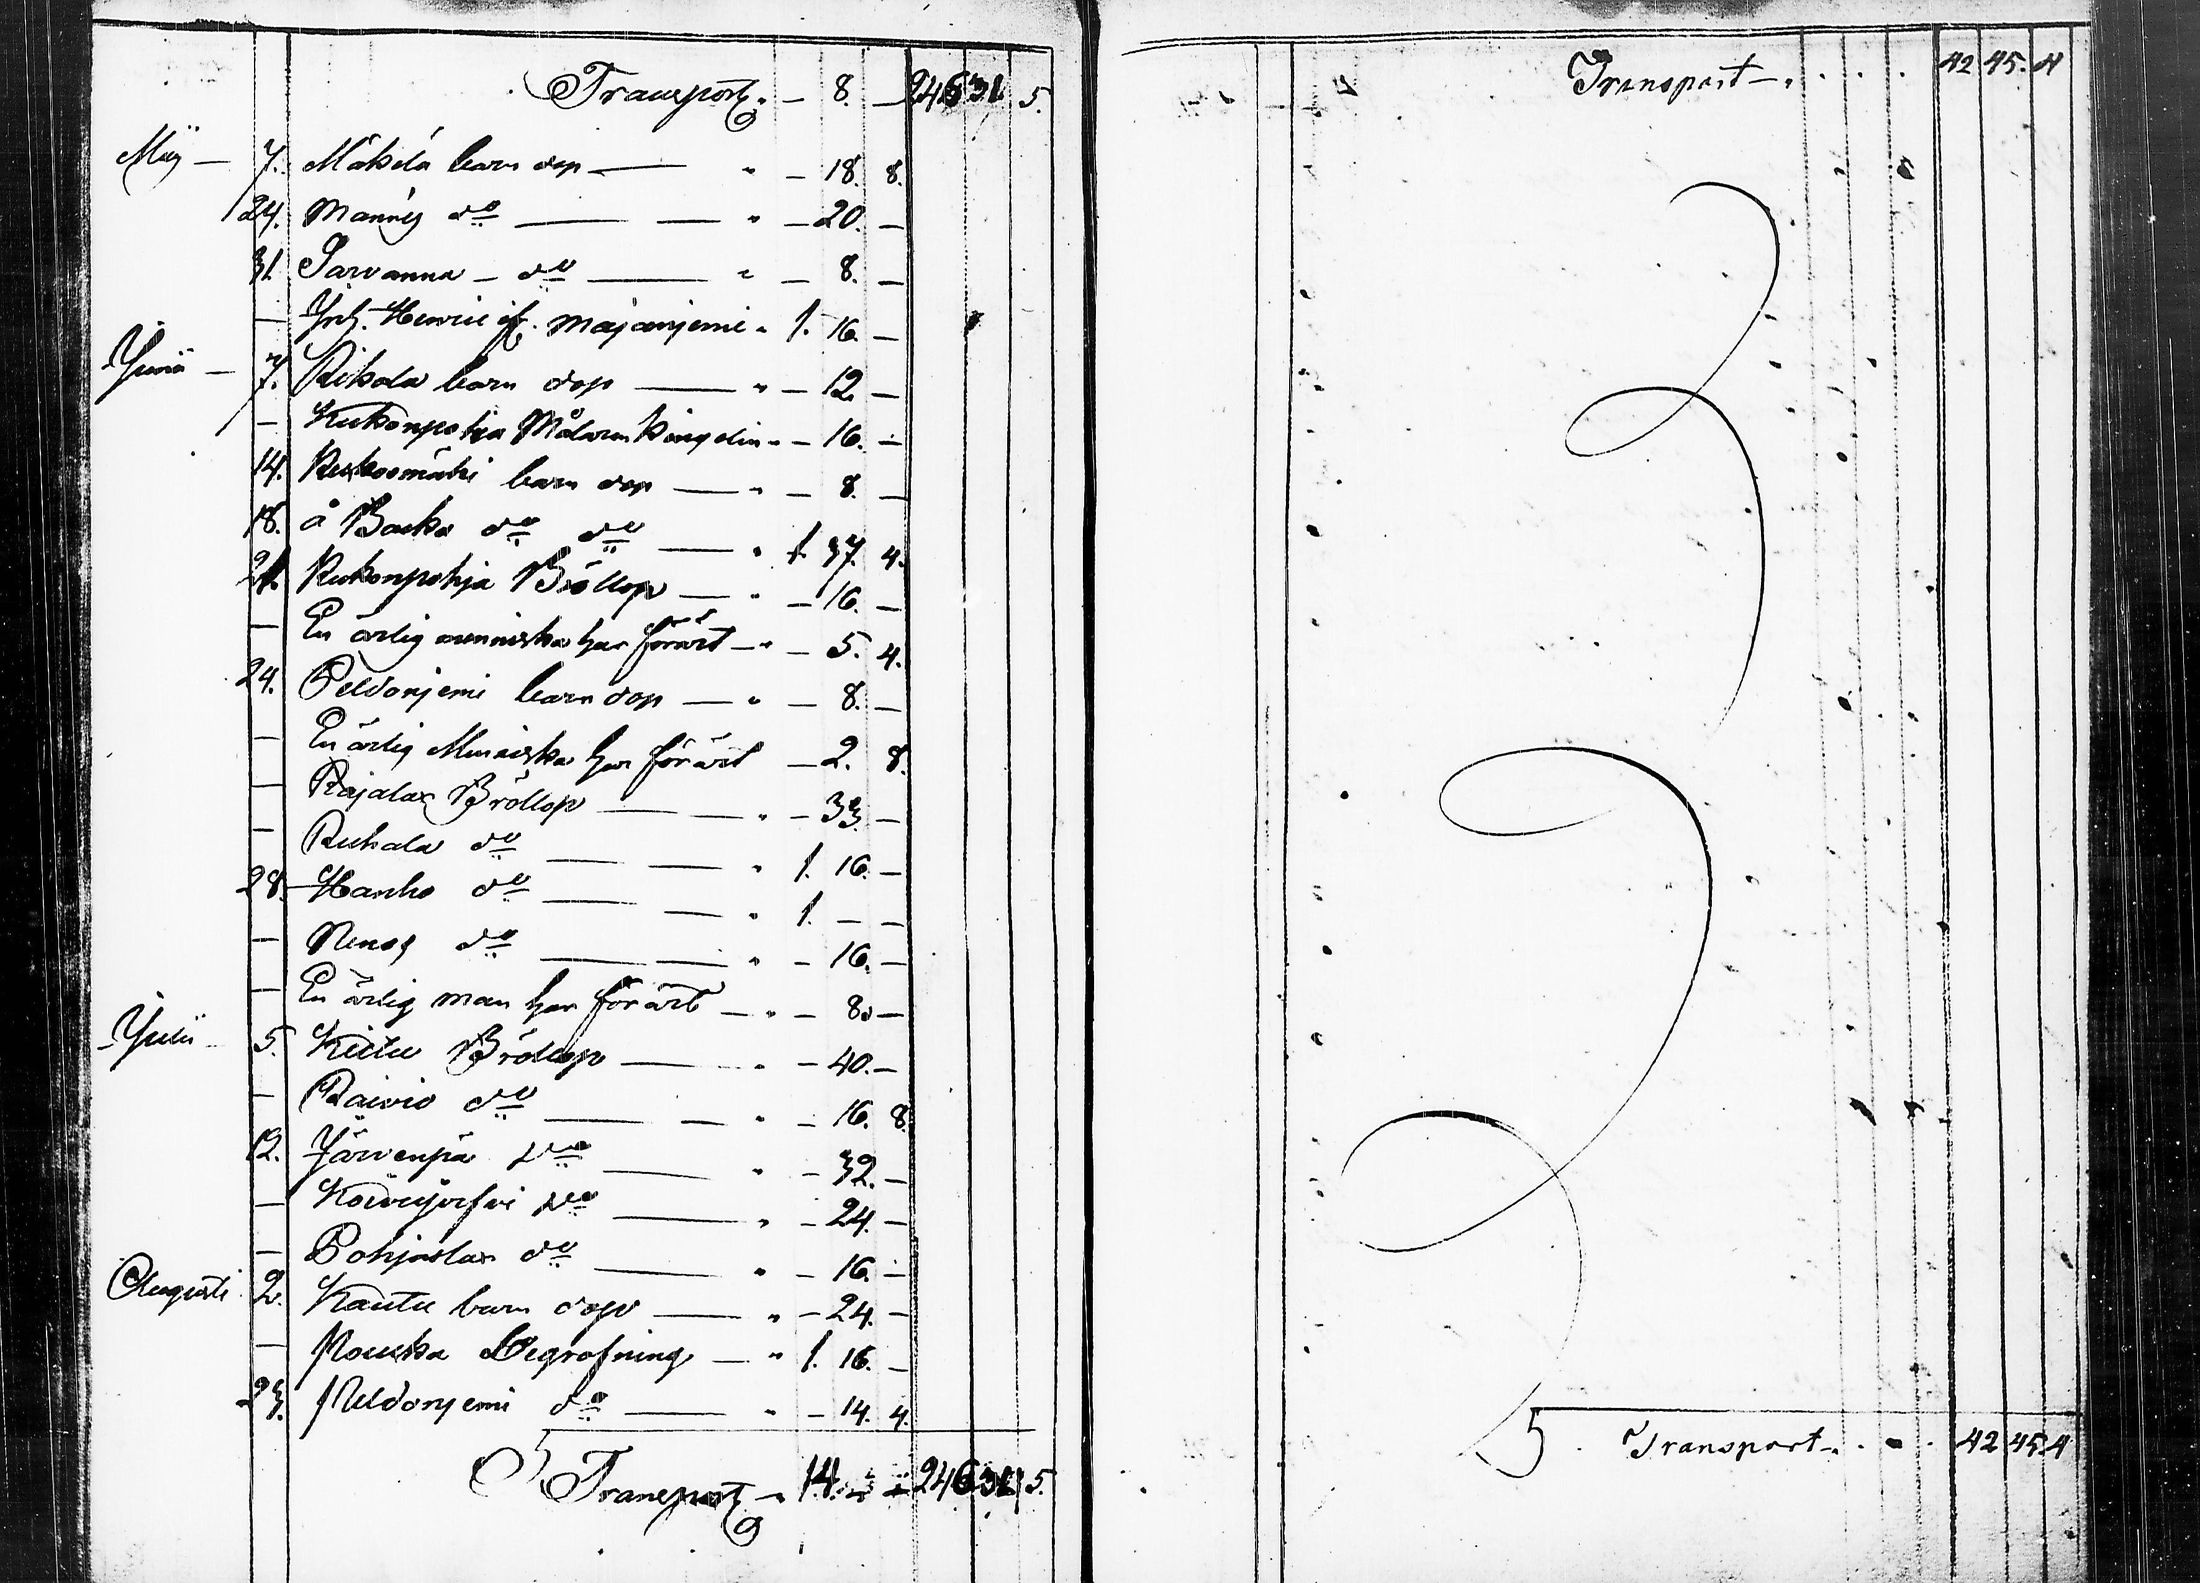 Transport - 8. - 246 31. 5.
Maij - 7. Mäkelä barn dop - " - 18. 8.
24. Männig do - " - 20. -
31. Sarvanna - do - " - 8. -
- Henric Majanjemi " 1. 16. -
Junii - 7. Rikala barn dop - " - 12. -
- Kukonpohja Målaren - - 16. -
14. Keskoomäki barn dop - " - 8. -
18. å Backa do do - " 1. 37. 4.
21. Kukonpohja Bröllop - " - 16. -
- En ärlig menniska har förärt - " - 5. 4.
24. Peldonjemi barn dop - " - 8. -
- En ärlig Menniska har förärt - 2. 8.
- Rajalax Bröllop - " - 33. -
- Ruhala do - " 1. 16. -
28. Hanho do - " 1. - -
- do - " - 16. -
- En ärlig man har förärt - " - 8. -
Julii - 5. Kiitu Bröllop - " - 40. -
- Raivio do - " - 16. 8.
12. Järvenpä do - " - 32. -
- do - " - 24. -
- Pohjoslax do - " - 16. -
Augusti 2. Kautu barn dop - " - 24. -
- Mouska Begrafning - " 1. 16. -
23. Peldonjemi do - " - 14. 4.
Transport - 14. - - 246 31. 5.
Transport - . . . . 42 45. 4
Transport - . . . 42 45. 4